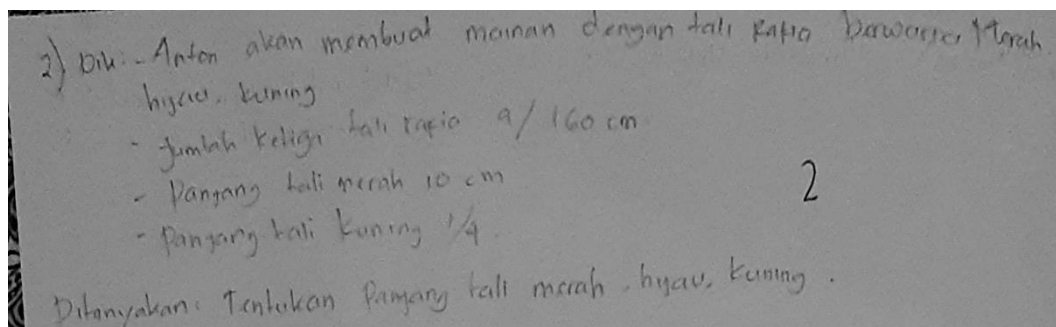 2) Dik: - Anton akan membuat mainan dengan tali Rafia berwarna Merah
hijau, kuning
- Jumlah ketiga tali rafia a/ 160 cm
- Panjang tali merah 10 cm
2
- Panjang tali kuning 1/4
Ditanyakan: Tentukan Panjang tali merah, hijau, kuning.